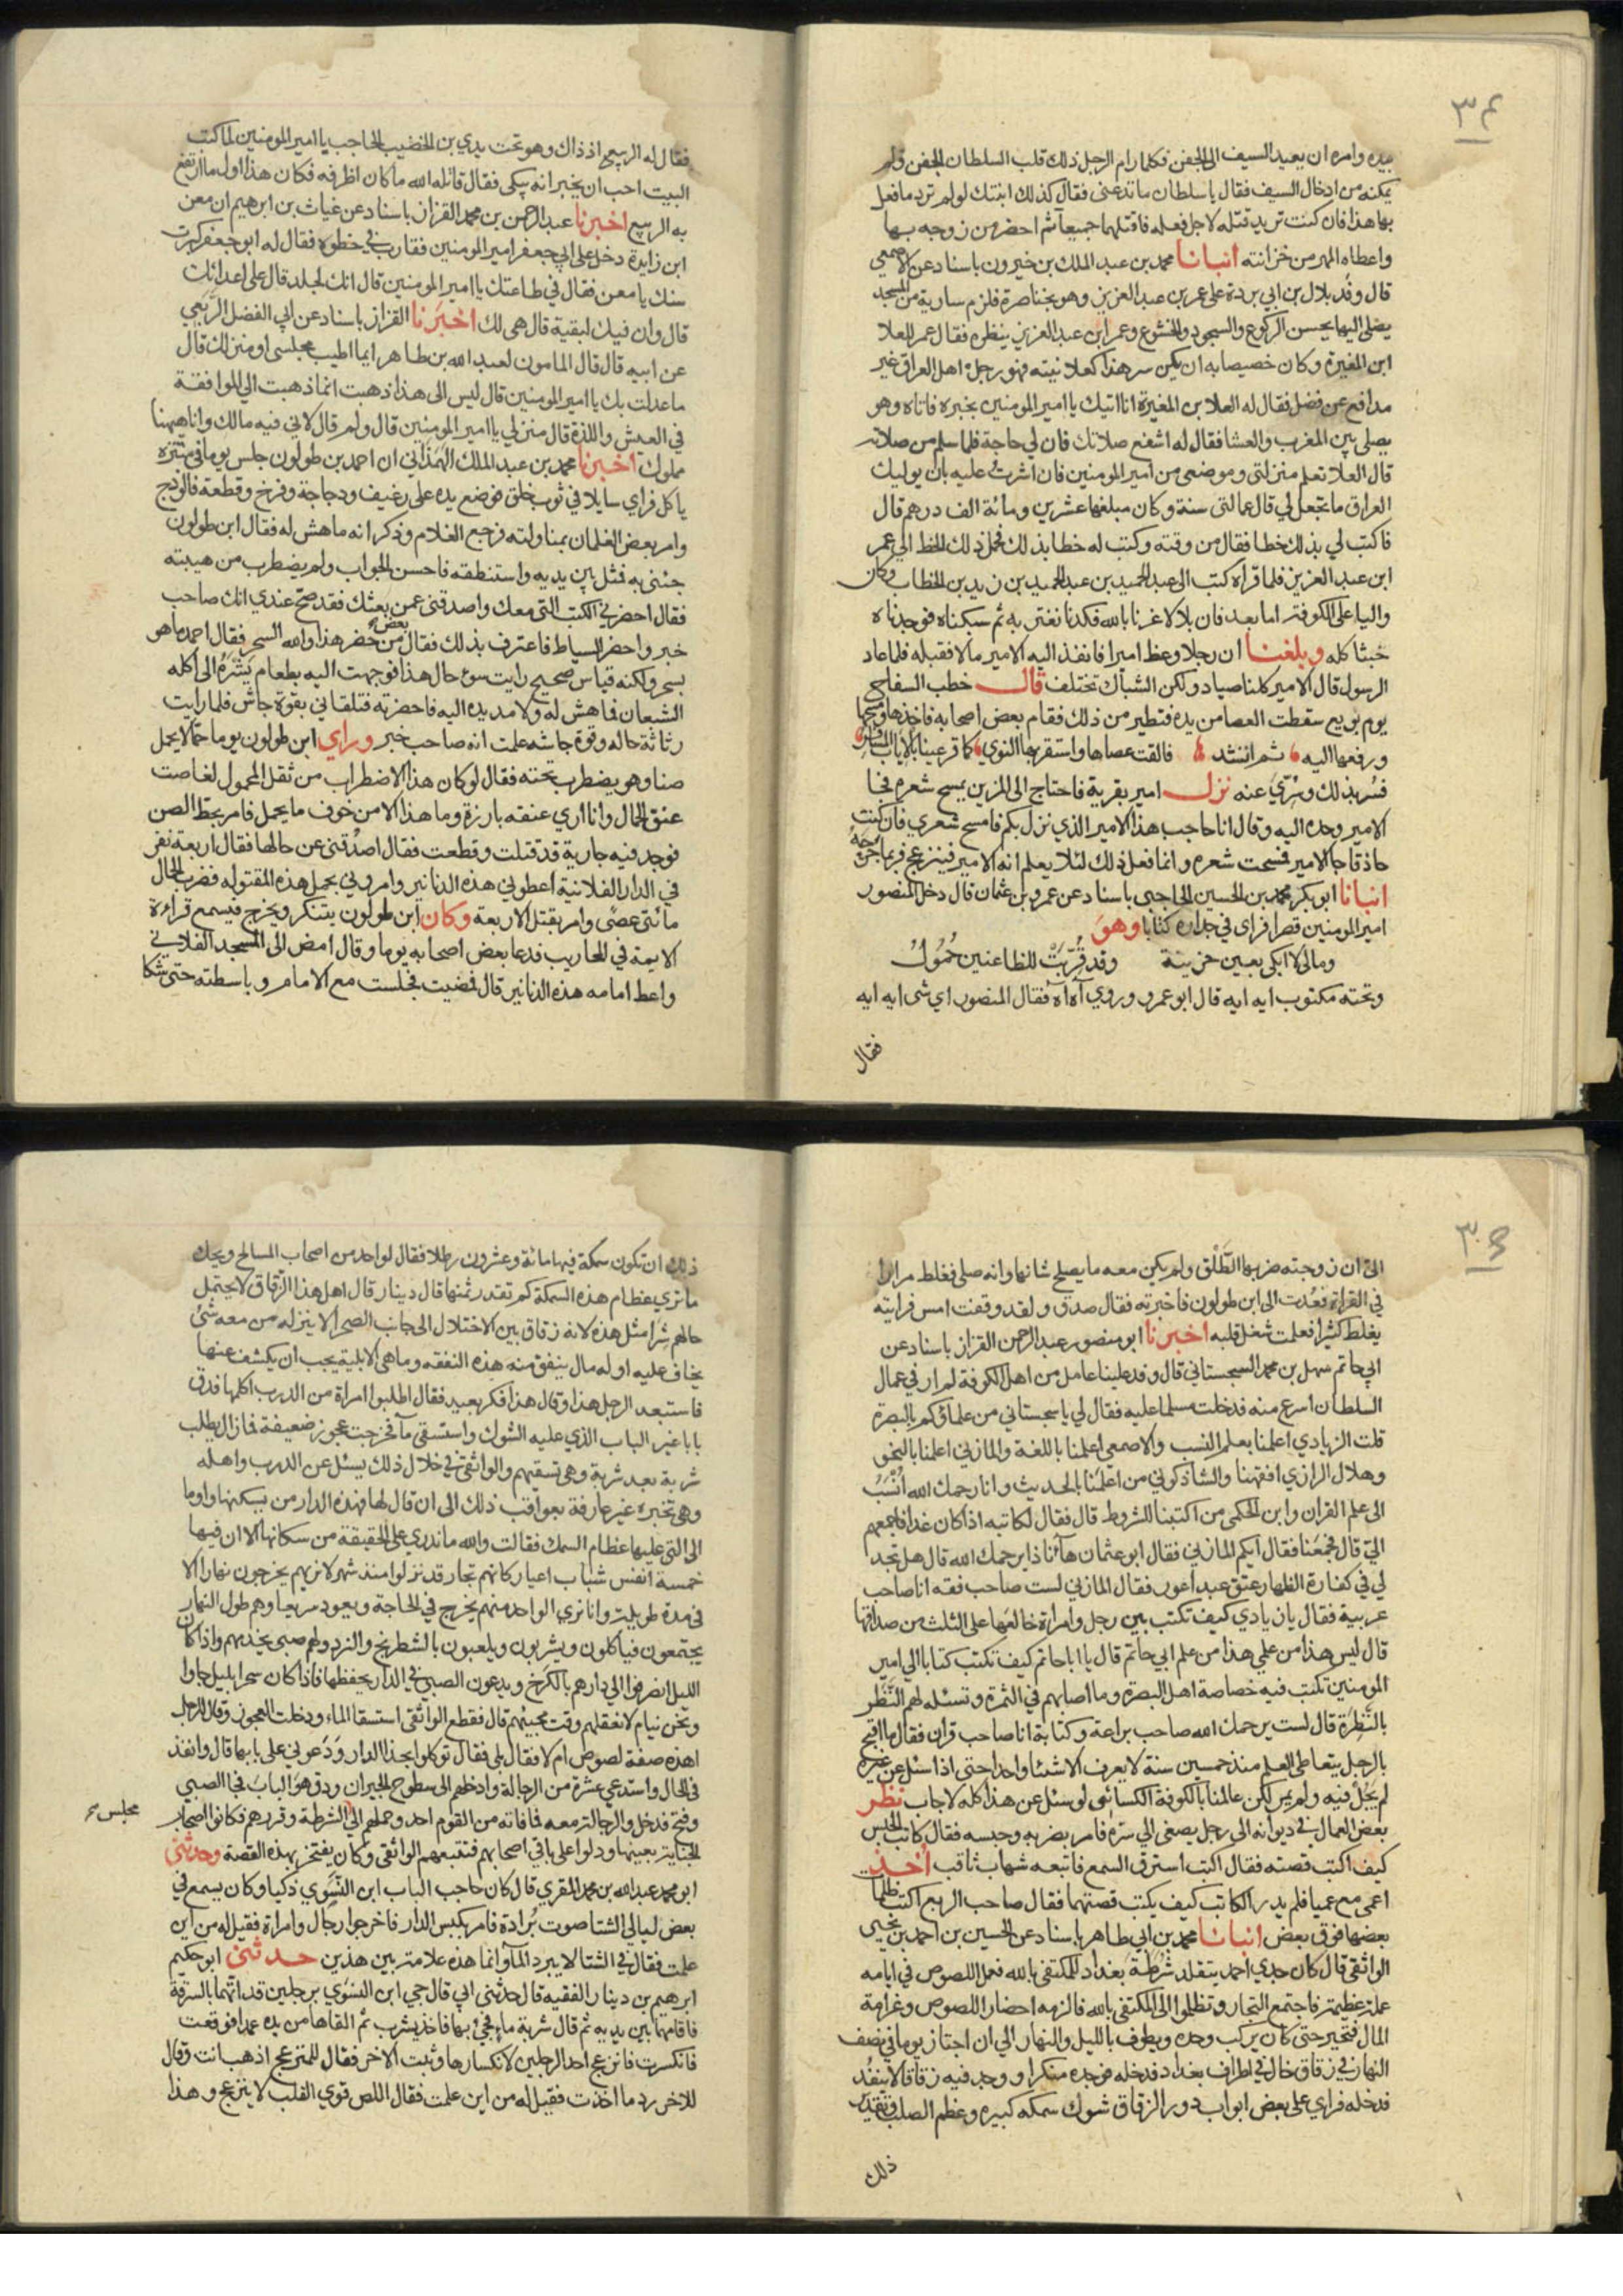 ٣٤
بيده وامره ان يعيد السيف الى الجفن فكلما رام الرجل ذلك قلب السلطان الجفن فلم
يمكنه من ادخال السيف فقال يا سلطان ما تدعني فقال كذلك ابنتك لو لم ترد ما فعل
بها هذا فان كنت تريد قتله لاجل فعله فاقتلهما جميعا ثم احضر من زوجه بها
واعطاه المهر من خزانته انبانا محمد بن عبد الملك بن خيرون باسناد عن الاصمعي
قال وفد بلال بن ابي بردة على عمر بن عبد العزيز وهو بخناصرة فلزم سارية من المسجد
يصلي اليها يحسن الركوع والسجود والخشوع وعمر ابن عبد العزيز ينظره فقال عمر للعلا
ابن المغيرة وكان خصيصا به ان يكن سر هذا كعلانيته فهو رجل اهل العراق غير
مدافع عن فضل فقال له العلا بن المغيرة انا اتيك يا امير المومنين بخبره فاتاه وهو
يصلي بين المغرب والعشا فقال له اشفع صلاتك فان لي حاجة فلما سلم من صلاته
قال العلا تعلم منزلتي وموضعي من امير المومنين فان اشرت عليه بان يوليك
العراق ما تجعل لي قال عمالتي سنة وكان مبلغها عشرين ومائة الف درهم قال
فاكتب لي بذلك خطا فقال من وقته وكتب له خطا بذلك فحمل ذلك الخط الى عمر
ابن عبد العزيز فلما قراه كتب الى عبد الحميد بن عبد الحميد بن زيد بن الخطاب وكان
واليا على الكوفة اما بعد فان بلالا غرنا بالله فكدنا نغتر به ثم سبكناه فوجدناه
خبثا كله وبلغنا ان رجلا وعظ اميرا فانفذ اليه الامير مالا فقبله فلما عاد
الرسول قال الامير كلنا صياد ولكن الشباك تختلف قال خطب السفاح
يوم بويع سقطت العصا من يده فتطير من ذلك فقام بعض اصحابه فاخذها ومسحها
ورفعها اليه ثم انشد فالقت عصاها واستقر بها النوي كما قر عينا بالاياب المسافر
فسر بذلك وسري عنه نزل امير بقرية فاحتاج الى المزين يمسح شعره فجا
الامير وحده اليه وقال انا حاجب هذا الامير الذي نزل بكم فامسح شعري فان كنت
حاذقا جا الامير فمسحت شعره وانما فعل ذلك لئلا يعلم انه الامير فينزعج فربما جرحه
انبانا ابو بكر محمد بن الحسين الحاجبي باسناد عن عمرو بن عثمان قال دخل المنصور
امير المومنين قصرا فراى في جداره كتابا وهو
ومالي لا ابكي بعين حزينة وقد قربت للظاعنين حمول
وتحته مكتوب ايه ايه قال ابو عمرو وروي آه آه فقال المنصور اي شى ايه ايه
فقال
فقال له الربيع اذ ذاك وهو تحت يدي بن الخضيب الحاجب يا امير المومنين لما كتب
البيت احب ان يخبر انه يبكي فقال قاتله الله ما كان اظرفه فكان هذا اول ما ارتفع
به الربيع اخبرنا عبد الرحمن بن محمد القزاز باسناد عن غياث بن ابرهيم ان معن
ابن زايدة دخل على ابي جعفر امير المومنين فقارب في خطوه فقال له ابو جعفر كبرت
سنك يا معن فقال في طاعتك يا امير المومنين قال انك لجلد قال على اعدائك
قال وان فيك لبقية قال هي لك اخبرنا القزاز باسناد عن ابي الفضل الربعي
عن ابيه قال قال المامون لعبد الله بن طاهر ايما اطيب مجلسي او منزلك قال
ما عدلت بك يا امير المومنين قال ليس الى هذا ذهبت انما ذهبت الي الموافقة
في العيش واللذة قال منزلي يا امير المومنين قال ولم قال لاني فيه مالك وانا ههنا
مملوك اخبرنا محمد بن عبد الملك الهمذاني ان احمد بن طولون جلس يوما في متنزه
ياكل فراي سايلا في ثوب خلق فوضع يده على رغيف ودجاجة وفرخ وقطعة فالوذج
وامر بعض الغلمان بمناولته فرجع الغلام وذكر انه ما هش له فقال ابن طولون
جئني به فمثل بين يديه واستنطقه فاحسن الجواب ولم يضطرب من هيبته
فقال احضر لي الكتب التي معك واصدقني عمن بعثك فقد صح عندي انك صاحب
خبر واحضر السياط فاعترف بذلك فقال بعض من حضر هذا والله السحر فقال احمد ما هو
بسحر ولكنه قياس صحيح رايت سوء حال هذا فوجهت اليه بطعام يشره الى اكله
الشبعان فما هش له ولا مد يده اليه فاحضرته فتلقاني بقوة جاش فلما رايت
رثاثة حاله وقوة جاشه علمت انه صاحب خبر وراي ابن طولون يوما حمالا يحمل
صنا وهو يضطرب تحته فقال لو كان هذا الاضطراب من ثقل المحمول لغاصت
عنق الحمال وانا اري عنقه بارزة وما هذا الا من خوف ما يحمل فامر بحط الصن
فوجد فيه جارية قد قتلت وقطعت فقال اصدقني عن حالها فقال اربعة نفر
في الدار الفلانية اعطوني هذه الدنانير وامروني بحمل هذه المقتوله فضرب الحمال
مائتي عصى وامر بقتل الاربعة وكان ابن طولون يتنكر ويخرج فيسمع قراءة
الايمة في المحاريب فدعا بعض اصحابه يوما وقال امض الى المسجد الفلاني
واعط امامه هذه الدنانير قال فمضيت فجلست مع الامام وباسطته حتى شكا
٣٥
الي ان زوجته ضربها الطلق ولم يكن معه ما يصلح شانها وانه صلى فغلط مرارا
في القراة فعدت الى ابن طولون فاخبرته فقال صدق ولقد وقفت امس فرايته
يغلط كثيرا فعلمت شغل قلبه اخبرنا ابو منصور عبد الرحمن القزاز باسناد عن
ابي حاتم سهل بن محمد السجستاني قال وفد علينا عامل من اهل الكوفة لم ار في عمال
السلطان اسرع منه فدخلت مسلما عليه فقال لي يا سجستاني من علماؤكم بالبصرة
قلت الزيادي اعلمنا بعلم النسب والاصمعي اعلمنا باللغة والمازني اعلمنا بالنحو
وهلال الرازي افقهنا والشاذكوني من اعلمنا بالحديث وانا رحمك الله انسب
الى علم القران وابن الكلبي من اكتبنا للشروط قال فقال لكاتبه اذا كان غدا فاجمعهم
الي قال فجمعنا فقال ايكم المازني فقال ابو عثمان هآنا ذا يرحمك الله قال هل تجد
لي في كفارة الظهار عتق عبد اعور فقال المازني لست صاحب فقه انا صاحب
عربية فقال يا زيادي كيف تكتب بين رجل وامراة خالعها على الثلث من صداقها
قال ليس هذا من علمي هذا من علم ابي حاتم قال يا ابا حاتم كيف تكتب كتابا الي امير
المومنين تكتب فيه خصاصة اهل البصرة وما اصابهم في الثمرة وتسئله لهم النظر
بالنظرة قال لست يرحمك الله صاحب براعة وكتابة انا صاحب قران فقال ما اقبح
بالرجل يتعاطى العلم منذ خمسين سنة لا يعرف الا شيئا واحدا حتى اذا سئل عن غيره
لم يجل فيه ولم يمر لكن عالمنا بالكوفة الكسائى لو سئل عن هذا كله لاجاب نظر
بعض العمال في ديوانه الى رجل يصغى الي سره فامر بضربه وحبسه فقال كاتب الحبس
كيف اكتب قصته فقال اكتب استرق السمع فاتبعه شهاب ثاقب اخذ
اعمى مع عميا فلم يدر الكاتب كيف يكتب قصتهما فقال صاحب الربع اكتب ظلمات
بعضها فوق بعض انبانا محمد بن ابي طاهر باسناد عن الحسين بن احمد بن يحيى
الواثقي قال كان جدي احمد يتقلد شرطة بغداد للمكتفي بالله فعمل اللصوص في ايامه
عملة عظيمة فاجتمع التجار وتظلموا الى المكتفي بالله فالزمه احضار اللصوص وغرامة
المال فتحير حتى كان يركب وحده ويطوف بالليل والنهار الي ان اجتاز يوما في نصف
النهار في زقاق خال في اطراف بغداد فدخله فوجده منكرا ووجد فيه زقاقا لا ينفذ
فدخله فراي على بعض ابواب دور الزقاق شوك سمكه كبيره وعظم الصلب وتقدير
ذلك
ذلك ان تكون سمكة فيها مائة وعشرون رطلا فقال لواحد من اصحاب المسالح ويحك
ما تري عظام هذه السمكة كم تقدر ثمنها قال دينار قال اهل هذا الزقاق لا يحتمل
حالهم شرا مثل هذه لانه زقاق بين الاختلال الى جانب الصحرا لا ينزله من معه شئ
يخاف عليه او له مال ينفق منه هذه النفقه وما هي الا بلية يجب ان يكشف عنها
فاستبعد الرجل هذا وقال هذا فكر بعيد فقال اطلبوا امراة من الدرب اكلمها فدق
بابا غير الباب الذي عليه الشوك واستسقى مآ فخرجت عجوز ضعيفة فما زال يطلب
شربة بعد شربة وهي تسقيهم والواثقي في خلال ذلك يسئل عن الدرب واهله
وهي تخبره غير عارفة بعواقب ذلك الى ان قال لها فهذه الدار من يسكنها واوما
الى التي عليها عظام السمك فقالت والله ما ندري على الحقيقة من سكانها الا ان فيها
خمسة انفس شباب اعيار كانهم تجار قد نزلوا منذ شهر لا نريهم يخرجون نهارا الا
في مدة طويلة وانا نري الواحد منهم يخرج في الحاجة ويعود سريعا وهم طول النهار
يجتمعون فياكلون ويشربون ويلعبون بالشطرنج والنرد ولهم صبي يخدمهم واذا كان
الليل انصرفوا الي دار لهم بالكرخ ويدعون الصبي في الدار يحفظها فاذا كان سحرا بليل جاوا
ونحن نيام لا نعقلهم وقت مجيئهم قال فقطع الواثقي استسقا الماء ودخلت العجوز وقال للرجل
اهذه صفة لصوص ام لا فقال بلى فقال توكلوا بحذا الدار ودعوني على بابها قال وانفذ
في الحال واستدعي عشرة من الرجالة وادخلهم الى سطوح الجيران ودق هو الباب فجا الصبي
وفتح فدخل والرجالة معه فما فاته من القوم احد وحملهم الي مجلس الشرطة وقررهم فكانوا اصحاب
الجناية بعينها ودلوا على باقي اصحابهم فتتبعهم الواثقي وكان يفتخر بهذه القصة وحدثني
ابو محمد عبد الله بن محمد المقري قال كان حاجب الباب ابن النسوي ذكيا وكان يسمع في
بعض ليالي الشتا صوت برادة فامر بكبس الدار فاخرجوا رجال وامراة فقيل له من اين
علمت فقال في الشتا لا يبرد المآ وانما هذه علامة بين هذين حدثني ابو حكيم
ابرهيم بن دينار الفقيه قال حدثني ابي قال جي ابن النسوي برجلين قد اتهما بالسرقة
فاقامهما بين يديه ثم قال شربة ماء فجئ بها فاخذ يشرب ثم القاها من يده عمدا فوقعت
فانكسرت فانزعج احد الرجلين لانكسارها وثبت الاخر فقال للمنزعج اذهب انت وقال
للاخر رد ما اخذت فقيل له من اين علمت فقال اللص قوي القلب لا ينزعج وهذا